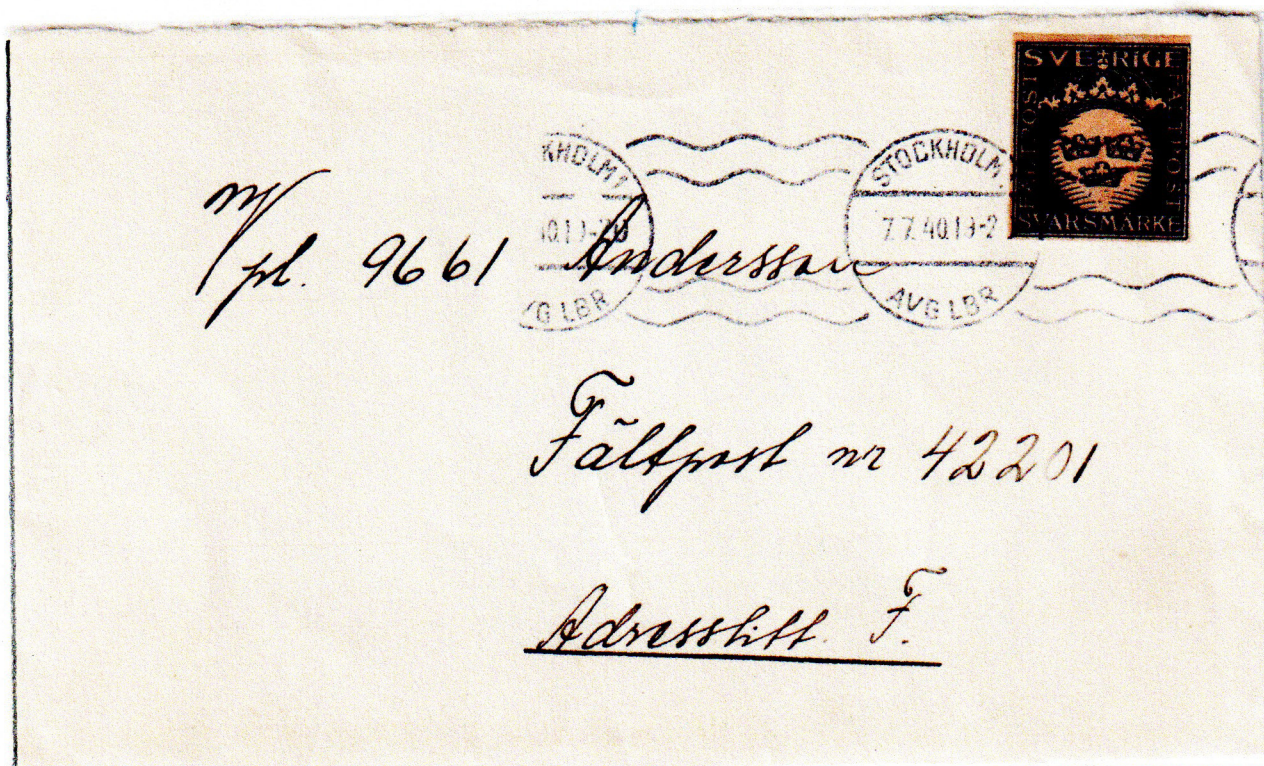 SVERIGE
FÄLTPOST
FÄLTPOST
SVARSMÄRKE
KHOLM 1
40.19-20
VG LBR
STOCKHOLM
7.7.40.19-2
AVG LBR
Vpl. 9661 Andersson
Fältpost nr 42201
Adresslitt. F.